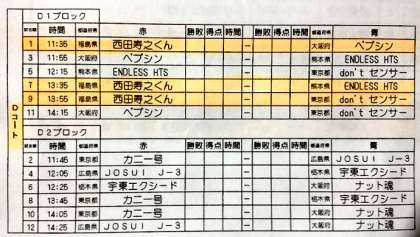 D1ブロック
試合順 時間 都道府県 赤 勝敗 得点 時間 勝敗 得点 時間 都道府県 青
1 11:35 福島県 西田寿之くん — 大阪府 ペプシン
3 11:55 大阪府 ペプシン — 熊本県 ENDLESS HTS
5 12:15 熊本県 ENDLESS HTS — 東京都 don't センサー
7 13:35 福島県 西田寿之くん — 熊本県 ENDLESS HTS
9 13:55 福島県 西田寿之くん — 東京都 don't センサー
11 14:15 大阪府 ペプシン — 東京都 don't センサー
Dコート
D2ブロック
試合順 時間 都道府県 赤 勝敗 得点 時間 勝敗 得点 時間 都道府県 青
2 11:45 東京都 カニー号 — 広島県 JOSUI J-3
4 12:05 広島県 JOSUI J-3 — 栃木県 宇東エクシード
6 12:25 栃木県 宇東エクシード — 大阪府 ナット魂
8 13:45 東京都 カニー号 — 栃木県 宇東エクシード
10 14:05 東京都 カニー号 — 大阪府 ナット魂
12 14:25 広島県 JOSUI J-3 — 大阪府 ナット魂